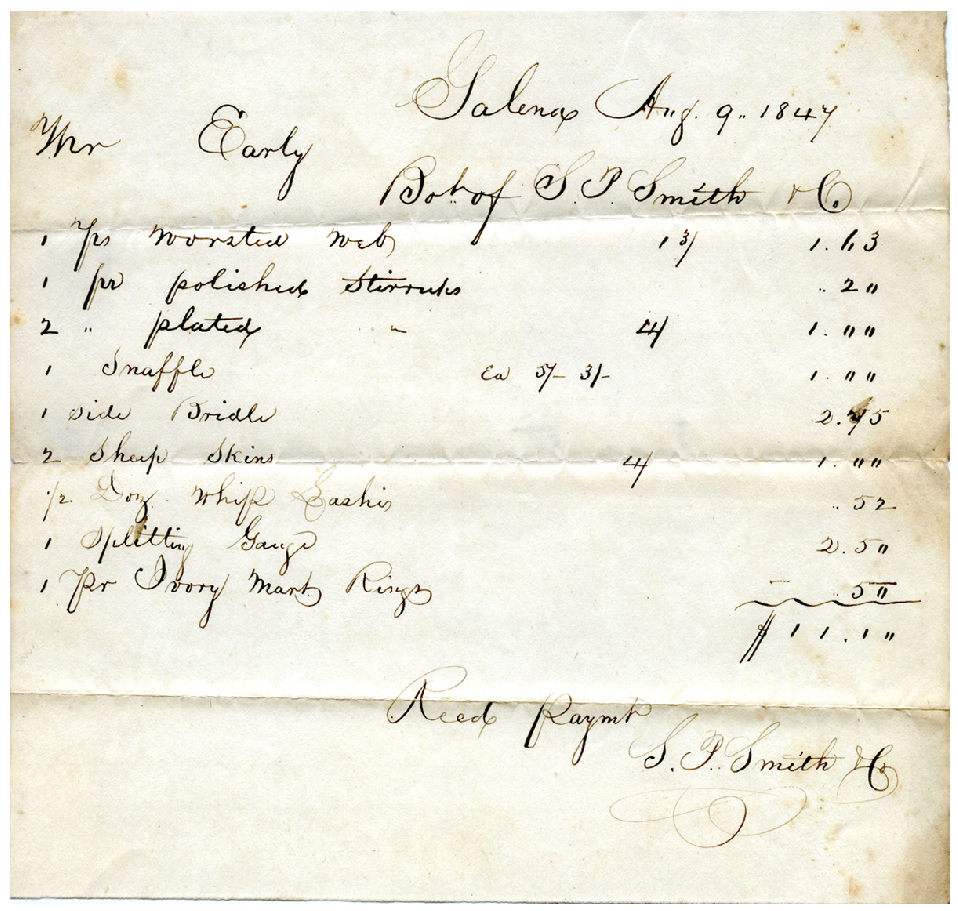 Galena Aug. 9. 1847
Mr Early
Bot of S. P. Smith & Co.
1 Ps worsted Web 13/ 1.63
1 pr polished Stirrups .. 2"
2 " plated " 4/ 1. ""
1 Snaffle Ea 5/- 3/- 1. ""
1 side Bridle 2.75
2 Sheep Skins 4/ 1. ""
1/2 Doz. Whip Lashes .. 52
1 Splitting Gauge 2.5"
1 Pr Ivory Mart Rings 5"
$11.1"
Recd Paymt
S. P. Smith & Co